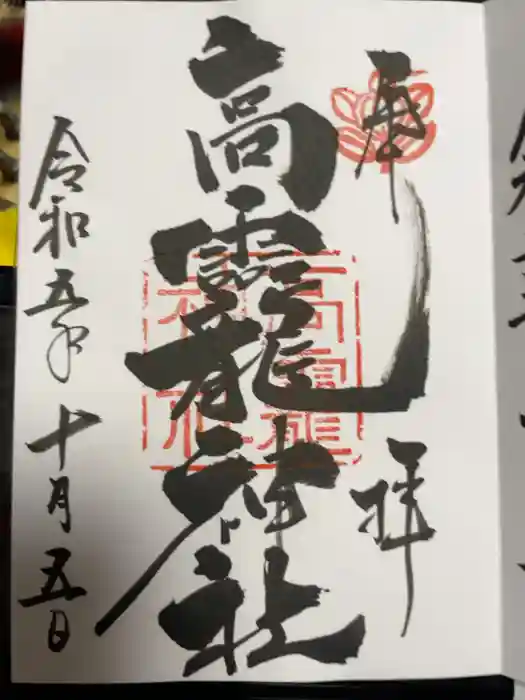 奉拝
高龗神社
高龗
神社
令和五年十月五日